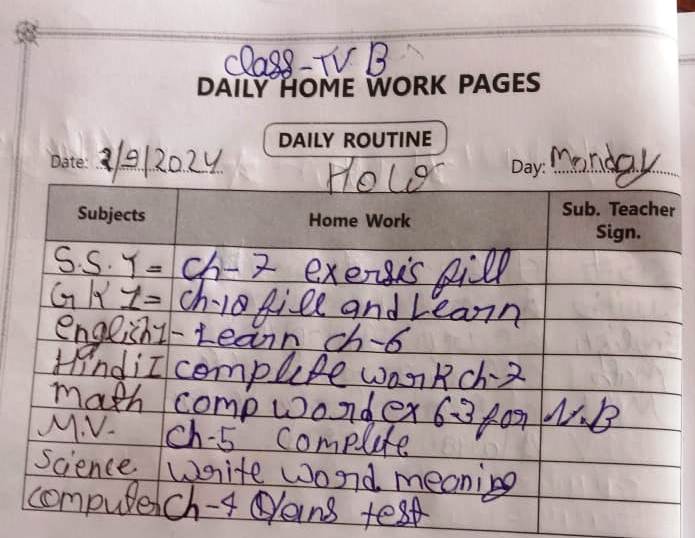 Class-IV B
DAILY HOME WORK PAGES
DAILY ROUTINE
Date: 2/9/2024 Day: Monday
Subjects Home Work Sub. Teacher Sign.
S.S.Y = Ch-7 exersis fill
G K I = Ch-18 fill and Learn
English I - Learn ch-6
Hindi I complete work ch-7
Math comp word ex 6.3 for N.B
M.V. Ch-5 Complete
Science write word meaning
Computer Ch-4 Q/ans test